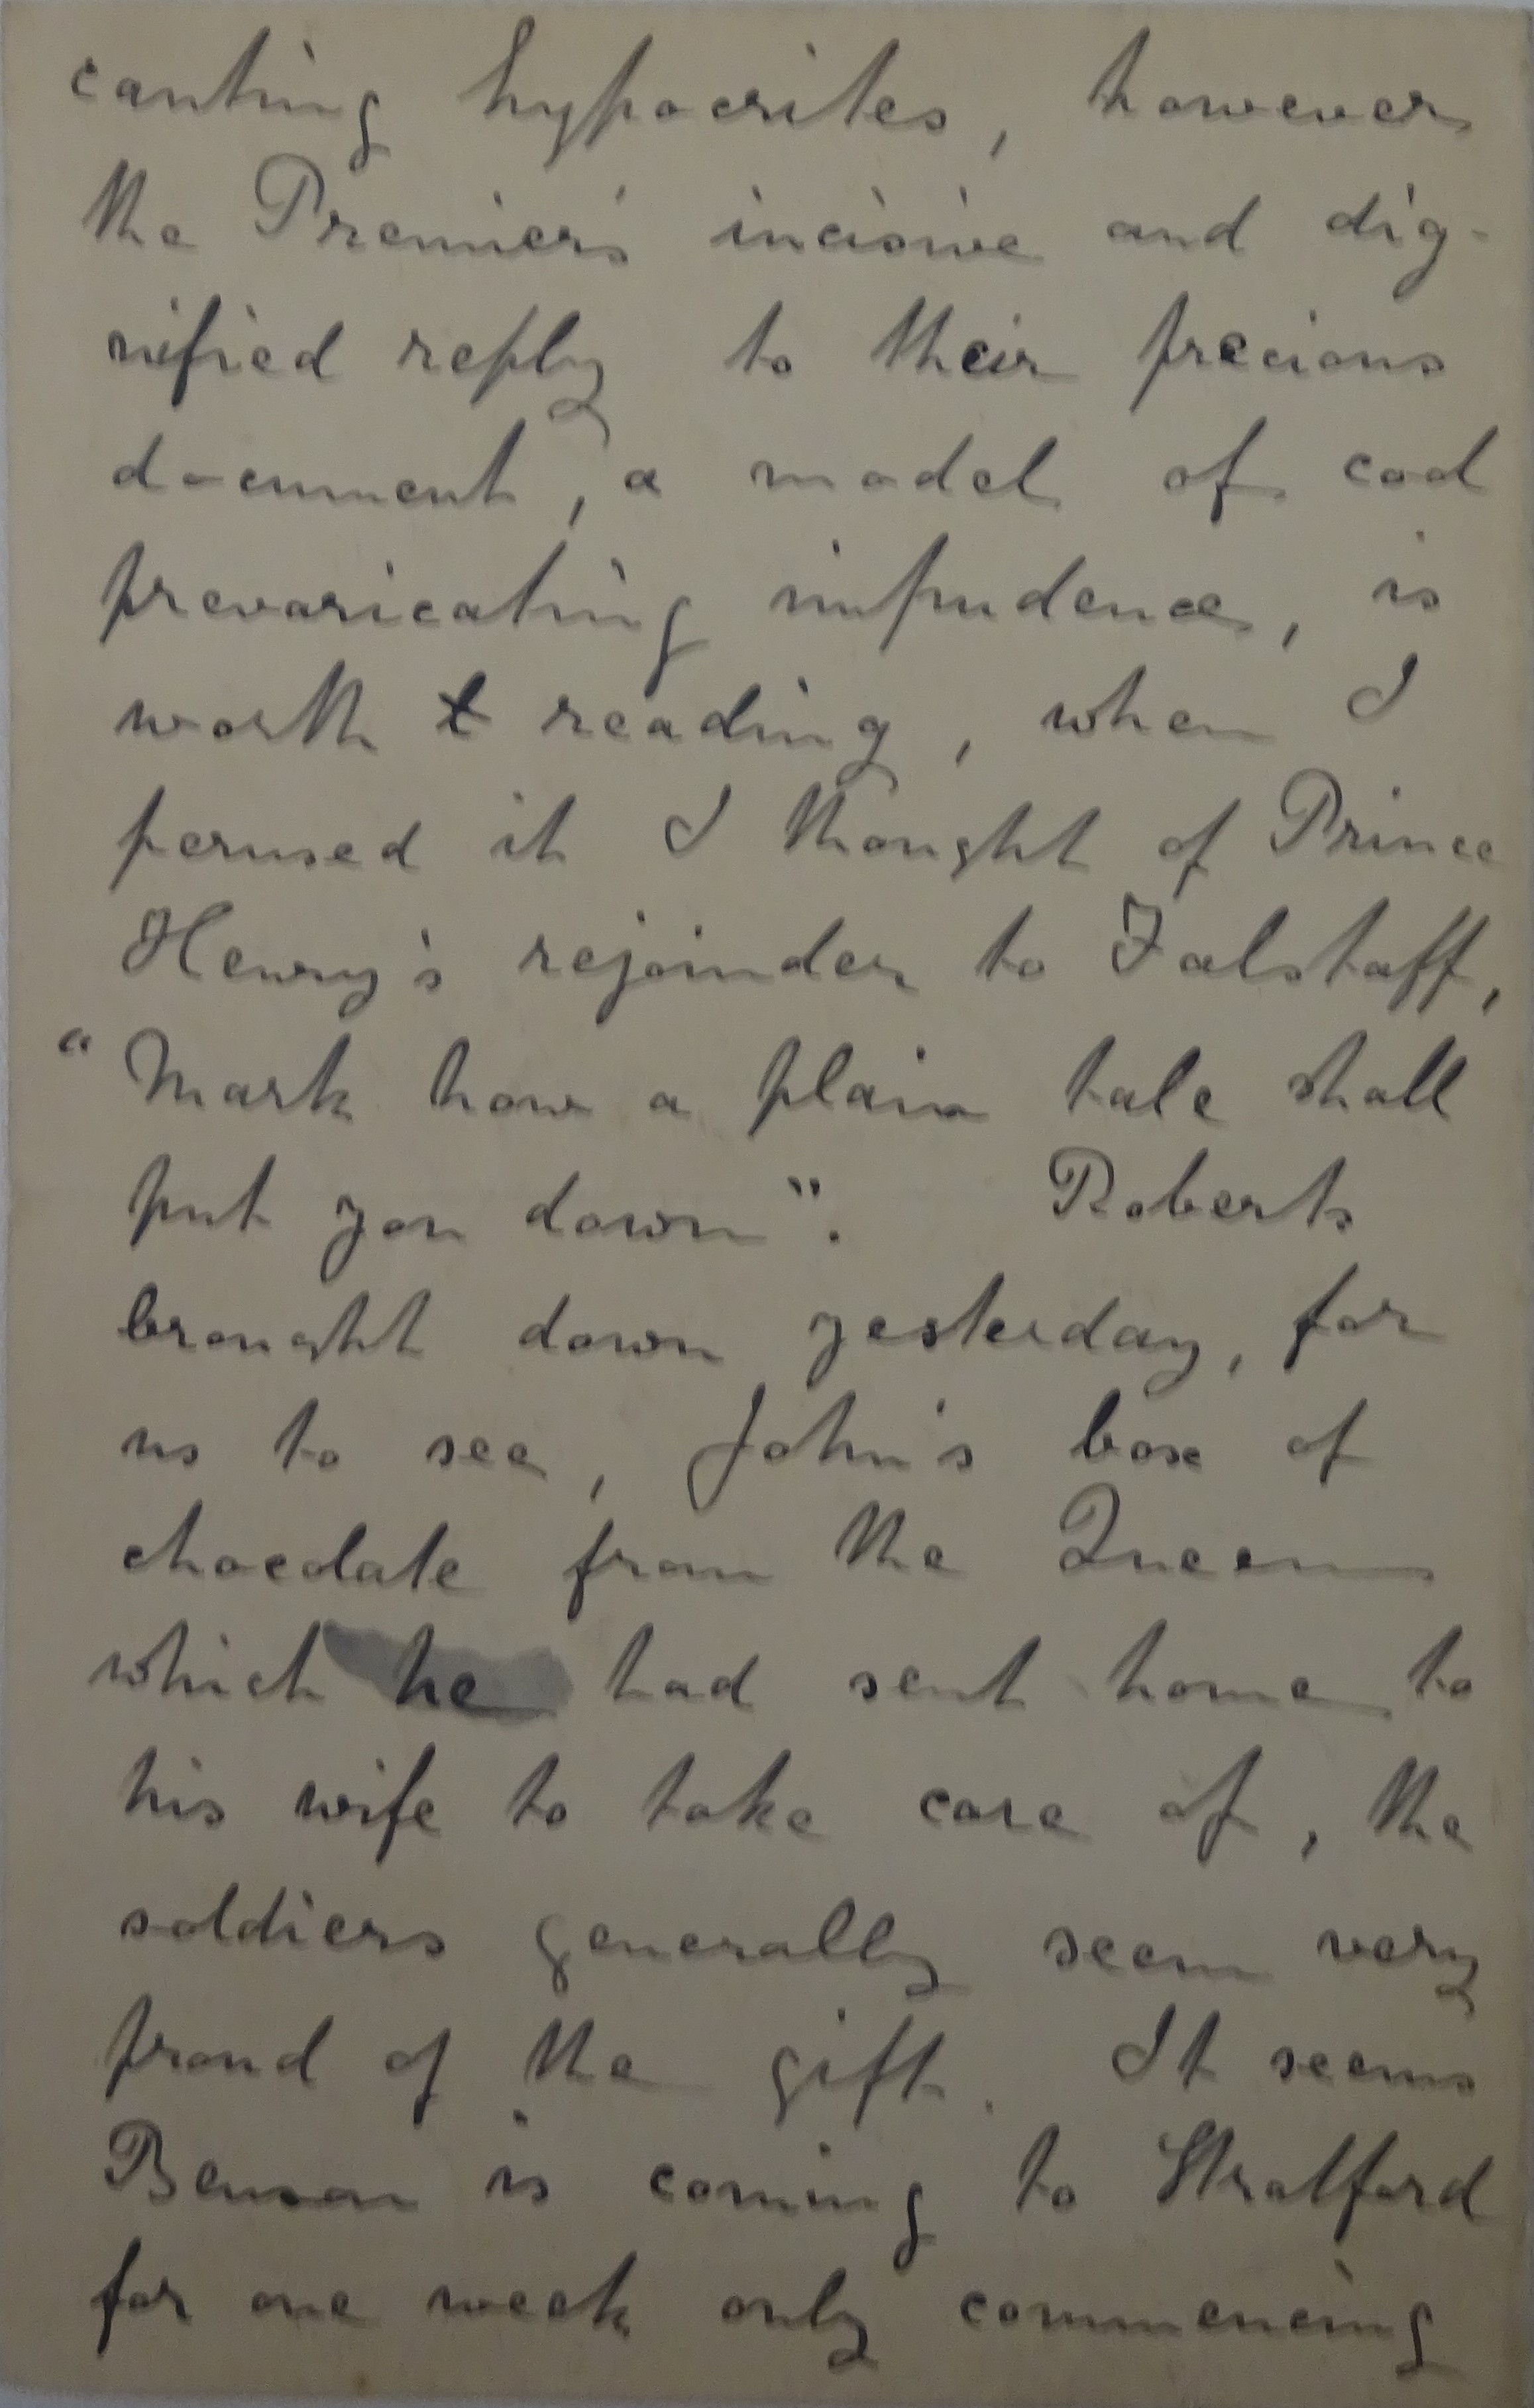 canting hypocrites, however
the Premier's incisive and dig-
nified reply to their precious
document, a model of cool
prevaricating impudence, is
worth t reading, when I
perused it I thought of Prince
Henry's rejoinder to Falstaff,
"Mark how a plain tale shall
put you down". Roberts
brought down yesterday, for
us to see, John's box of
chocolate from the Queen
which he had sent home to
his wife to take care of, the
soldiers generally seem very
proud of the gift. It seems
Benson is coming to Stratford
for one week only commencing